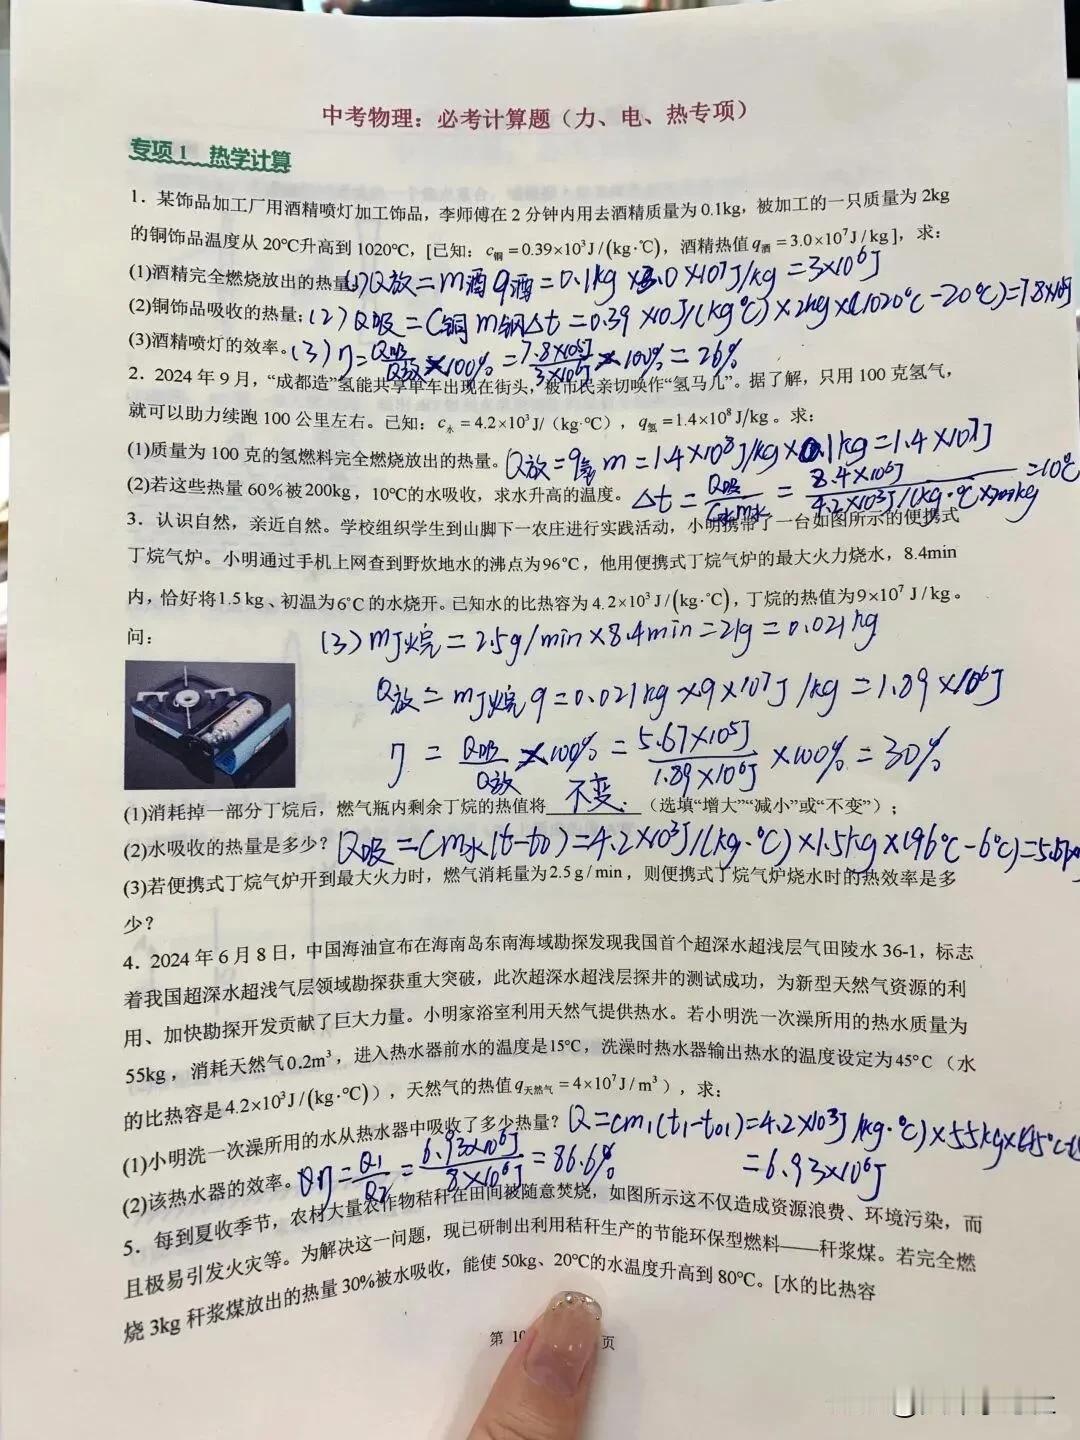 中考物理：必考计算题（力、电、热专项）
专项1 热学计算
1．某饰品加工厂用酒精喷灯加工饰品，李师傅在2分钟内用去酒精质量为0.1kg，被加工的一只质量为2kg
的铜饰品温度从20℃升高到1020℃，[已知：c铜=0.39×10³J/(kg·℃)，酒精热值q酒=3.0×10⁷J/kg]，求：
(1)酒精完全燃烧放出的热量 (1)Q放=m酒q酒=0.1kg×3.0×10⁷J/kg=3×10⁶J
(2)铜饰品吸收的热量；(2)Q吸=C铜m铜Δt=0.39×10³J/(kg℃)×2kg×(1020℃-20℃)=7.8×10⁵J
(3)酒精喷灯的效率。(3)η=Q吸/Q放×100%=7.8×10⁵J/3×10⁶J×100%=26%
2．2024年9月，“成都造”氢能共享单车出现在街头，被市民亲切唤作“氢马儿”。据了解，只用100克氢气，
就可以助力续跑100公里左右。已知：c水=4.2×10³J/（kg·℃），q氢=1.4×10⁸J/kg。求：
(1)质量为100克的氢燃料完全燃烧放出的热量。Q放=q氢m=1.4×10⁸J/kg×0.1kg=1.4×10⁷J
(2)若这些热量60%被200kg，10℃的水吸收，求水升高的温度。Δt=Q吸/C水m水=8.4×10⁶J/4.2×10³J/(kg·℃)×200kg=10℃
3．认识自然，亲近自然。学校组织学生到山脚下一农庄进行实践活动，小明携带了一台如图所示的便携式
丁烷气炉。小明通过手机上网查到野炊地水的沸点为96℃，他用便携式丁烷气炉的最大火力烧水，8.4min
内，恰好将1.5kg、初温为6℃的水烧开。已知水的比热容为4.2×10³J/(kg·℃)，丁烷的热值为9×10⁷J/kg。
问：
(3)m丁烷=2.5g/min×8.4min=21g=0.021kg
Q放=m丁烷q=0.021kg×9×10⁷J/kg=1.89×10⁶J
η=Q吸/Q放×100%=5.67×10⁵J/1.89×10⁶J×100%=30%
(1)消耗掉一部分丁烷后，燃气瓶内剩余丁烷的热值将 不变.（选填“增大”“减小”或“不变”）；
(2)水吸收的热量是多少？Q吸=Cm水(t-t0)=4.2×10³J/(kg·℃)×1.5kg×(96℃-6℃)=5.67×10
(3)若便携式丁烷气炉开到最大火力时，燃气消耗量为2.5g/min，则便携式丁烷气炉烧水时的热效率是多
少？
4．2024年6月8日，中国海油宣布在海南岛东南海域勘探发现我国首个超深水超浅层气田陵水36-1，标志
着我国超深水超浅气层领域勘探获重大突破，此次超深水超浅层探井的测试成功，为新型天然气资源的利
用、加快勘探开发贡献了巨大力量。小明家浴室利用天然气提供热水。若小明洗一次澡所用的热水质量为
55kg，消耗天然气0.2m³，进入热水器前水的温度是15℃，洗澡时热水器输出热水的温度设定为45℃（水
的比热容是4.2×10³J/(kg·℃)），天然气的热值q天然气=4×10⁷J/m³），求：
(1)小明洗一次澡所用的水从热水器中吸收了多少热量？Q=cm1(t1-t01)=4.2×10³J/(kg·℃)×55kg×(45℃-1
=6.93×10⁶J
(2)该热水器的效率。η=Q1/Q2=6.93×10⁶J/8×10⁶J=86.6%
5．每到夏收季节，农村大量农作物秸秆在田间被随意焚烧，如图所示这不仅造成资源浪费、环境污染，而
且极易引发火灾等。为解决这一问题，现已研制出利用秸秆生产的节能环保型燃料——秆浆煤。若完全燃
烧3kg秆浆煤放出的热量30%被水吸收，能使50kg、20℃的水温度升高到80℃。[水的比热容
第 10 页